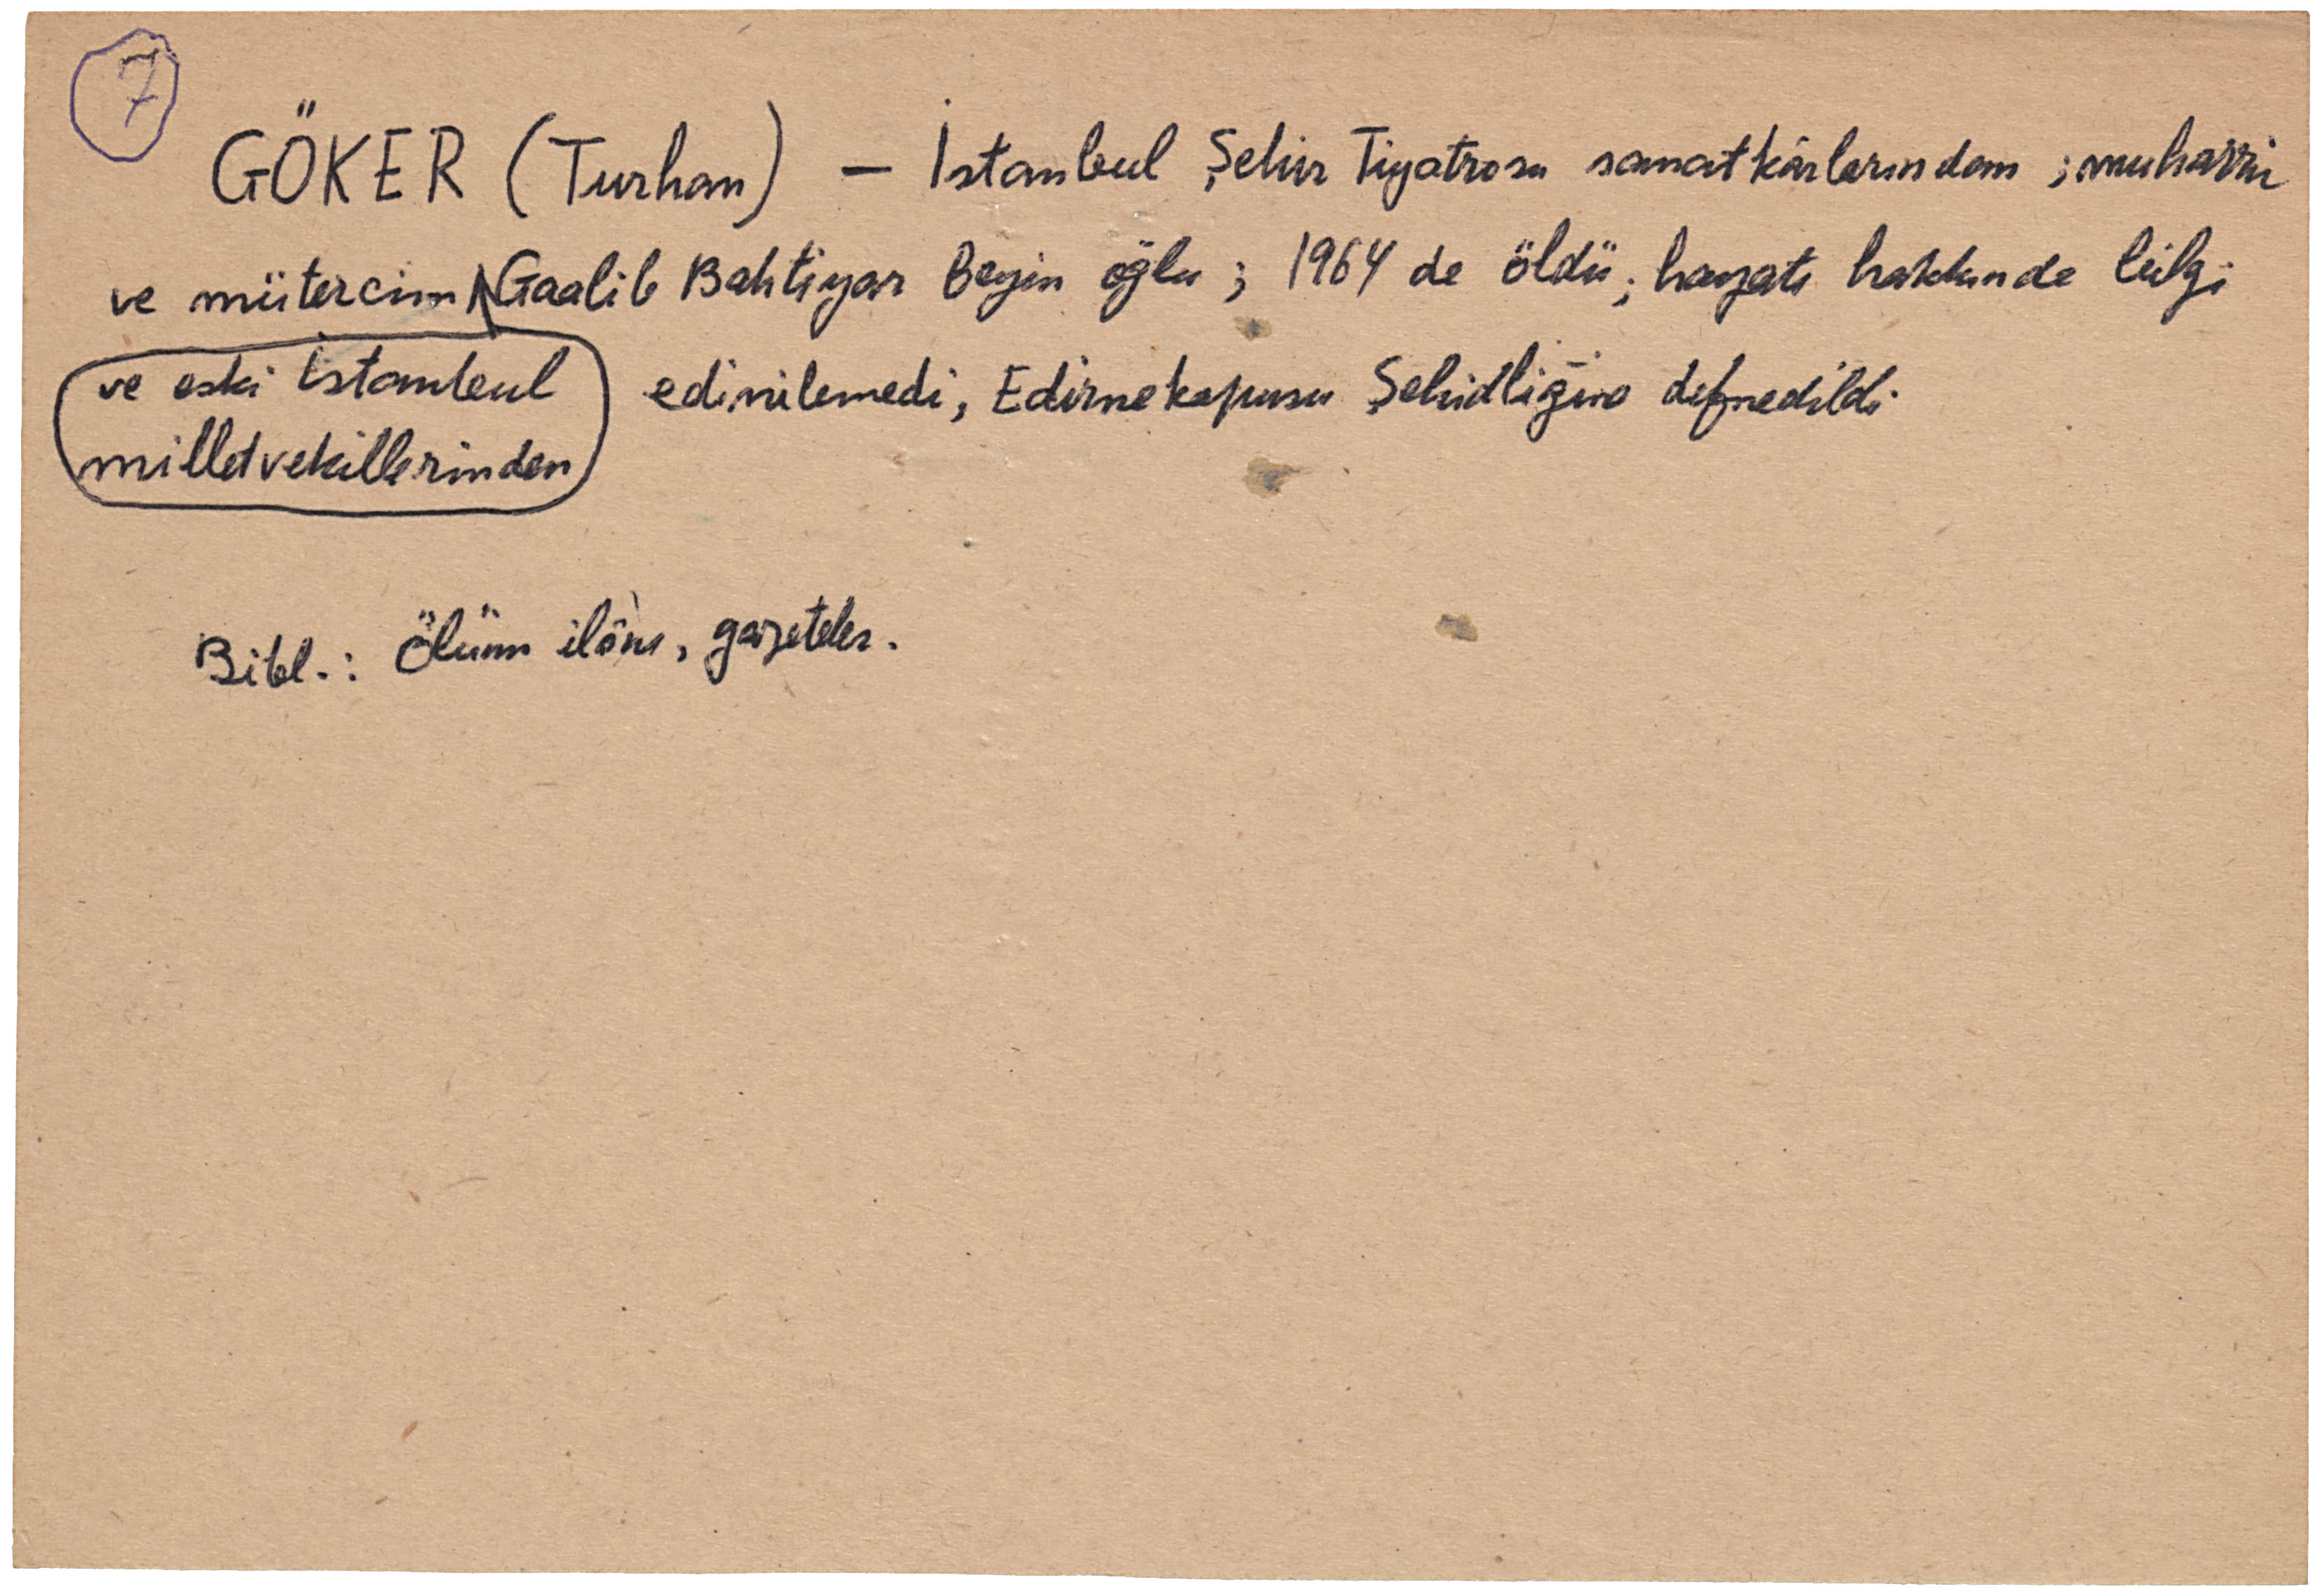 7
GÖKER (Turhan) — İstanbul Şehir Tiyatrosu sanatkârlarından ; muharrir
ve mütercim Gaalib Bahtiyar Beyin oğlu ; 1964 de öldü ; hayatı hakkında bilgi
ve eski İstanbul
milletvekillerinden
edinilemedi, Edirnekapusu Şehidliğine defnedildi
Bibl. : Ölüm ilânı, gazeteler.